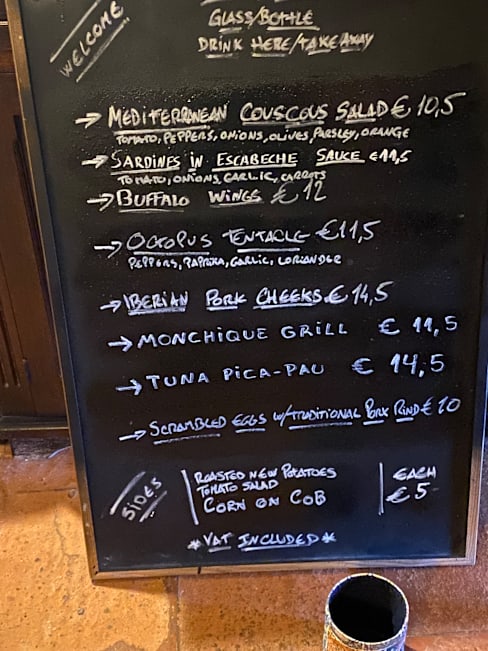 WELCOME
GLASS/BOTTLE
DRINK HERE/TAKEAWAY
→ MEDITERRANEAN COUSCOUS SALAD € 10,5
TOMATO, PEPPERS, ONIONS, OLIVES, PARSLEY, ORANGE
→ SARDINES IN ESCABECHE SAUCE €11,5
TOMATO, ONIONS, GARLIC, CARROTS
→ BUFFALO WINGS € 12
→ OCTOPUS TENTACLE €11,5
PEPPERS, PAPRIKA, GARLIC, CORIANDER
→ IBERIAN PORK CHEEKS € 14,5
→ MONCHIQUE GRILL € 11,5
→ TUNA PICA-PAU € 14,5
→ SCRAMBLED EGGS W/TRADITIONAL PORK RIND € 10
SIDES
ROASTED NEW POTATOES
TOMATO SALAD
CORN ON COB
EACH
€ 5
*VAT INCLUDED*